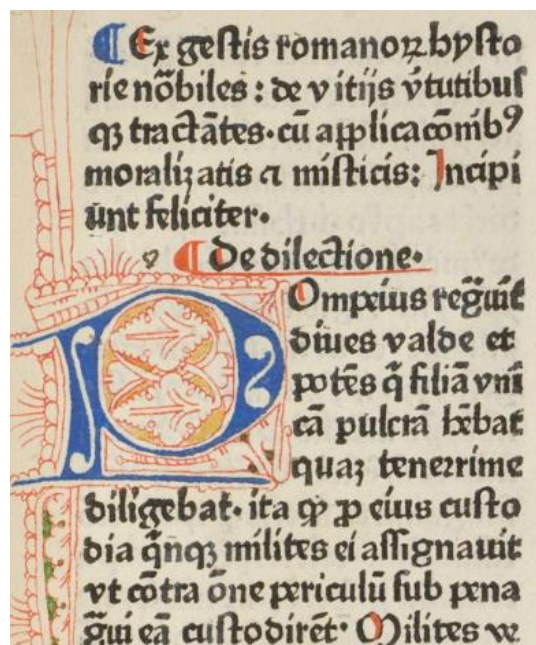 ¶ Ex gestis romanoꝝ hysto
rie nōbiles : de vitijs v̄tutibus
qꝫ tractātes · cū applicacōnibꝰ
moralizatis ⁊ misticis: Incipi
unt feliciter ·
¶ De dilectione ·
POmpeius regͣuit
diues valde et
potēs q̄ filiā vnī
cā pulcrā hēbat
quaꝫ tenerrime
diligebat · ita ꝙ ꝓ eius custo
dia q̄nqꝫ milites ei assignauit
vt cōtra ōne periculū sub pena
gͣui eā custodirēt · Milites ve